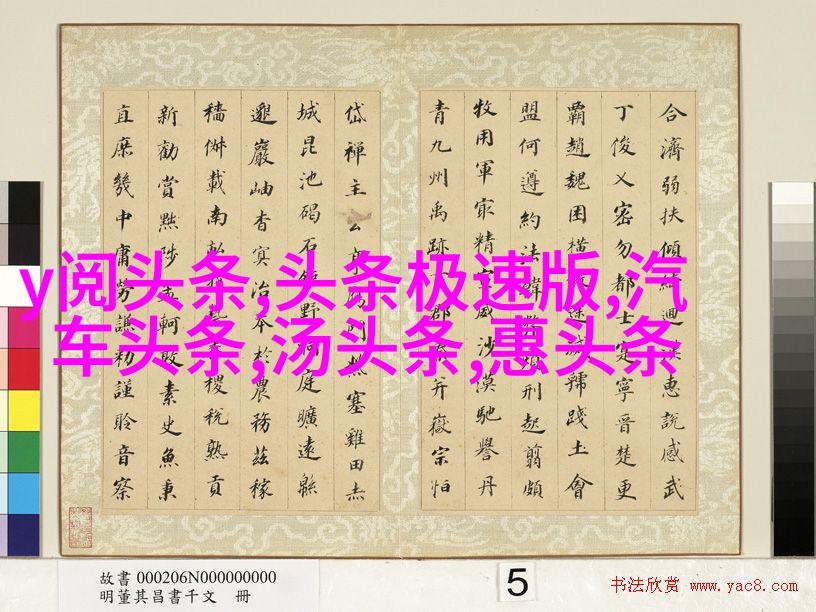 合濟弱扶傾綺迴漢惠說感武
丁俊乂密勿都士寔寧晉楚更
霸趙魏困橫途滅虢踐土會
盟何遵約法韓弊煩刑起翦頗
牧用軍冣精宣威沙漠馳譽丹
青九州禹跡郡秦并嶽宗恒
岱禪主云亭門紫塞雞田赤
城昆池碣石鉅野洞庭曠遠緜
邈巖岫杳冥治本於農務茲稼
穡俶載南畝我黍稷稅熟貢
新勸賞黜陟孟軻敦素史魚秉
直庶幾中庸勞謙勑謹聆音察
y阅头条,头条极速版,汽
车头条,汤头条,惠头条
故書 000206N000000000
明董其昌書千文 冊
5
书法欣赏 www.yac8.com